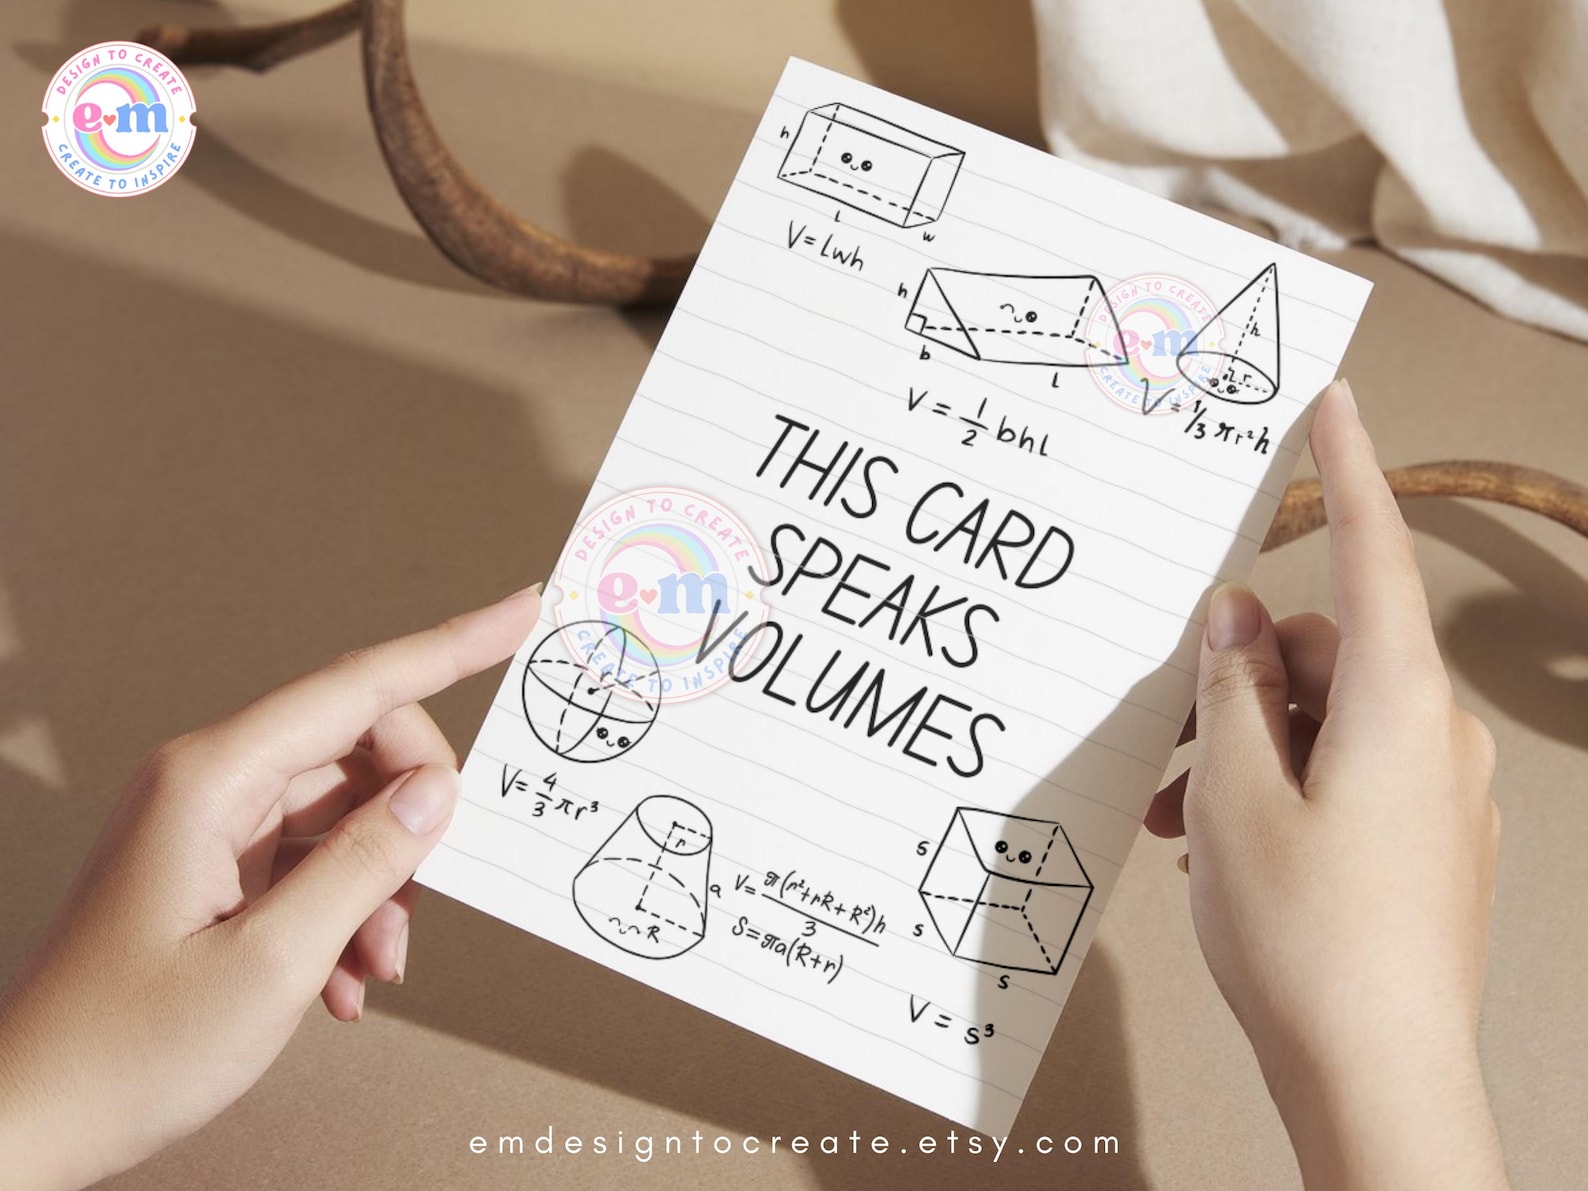 DESIGN TO CREATE
e m
CREATE TO INSPIRE
h
l
w
V = Lwh
h
b
l
V = 1/2 bhl
DESIGN TO CREATE
e m
CREATE TO INSPIRE
h
r
V = 1/3 πr²h
THIS CARD
SPEAKS
VOLUMES
DESIGN TO CREATE
e m
CREATE TO INSPIRE
r
V = 4/3 πr³
r
a
R
V = π(r²+rR+R²)h/3
S = πa(R+r)
s
s
s
V = s³
emdesigntocreate.etsy.com